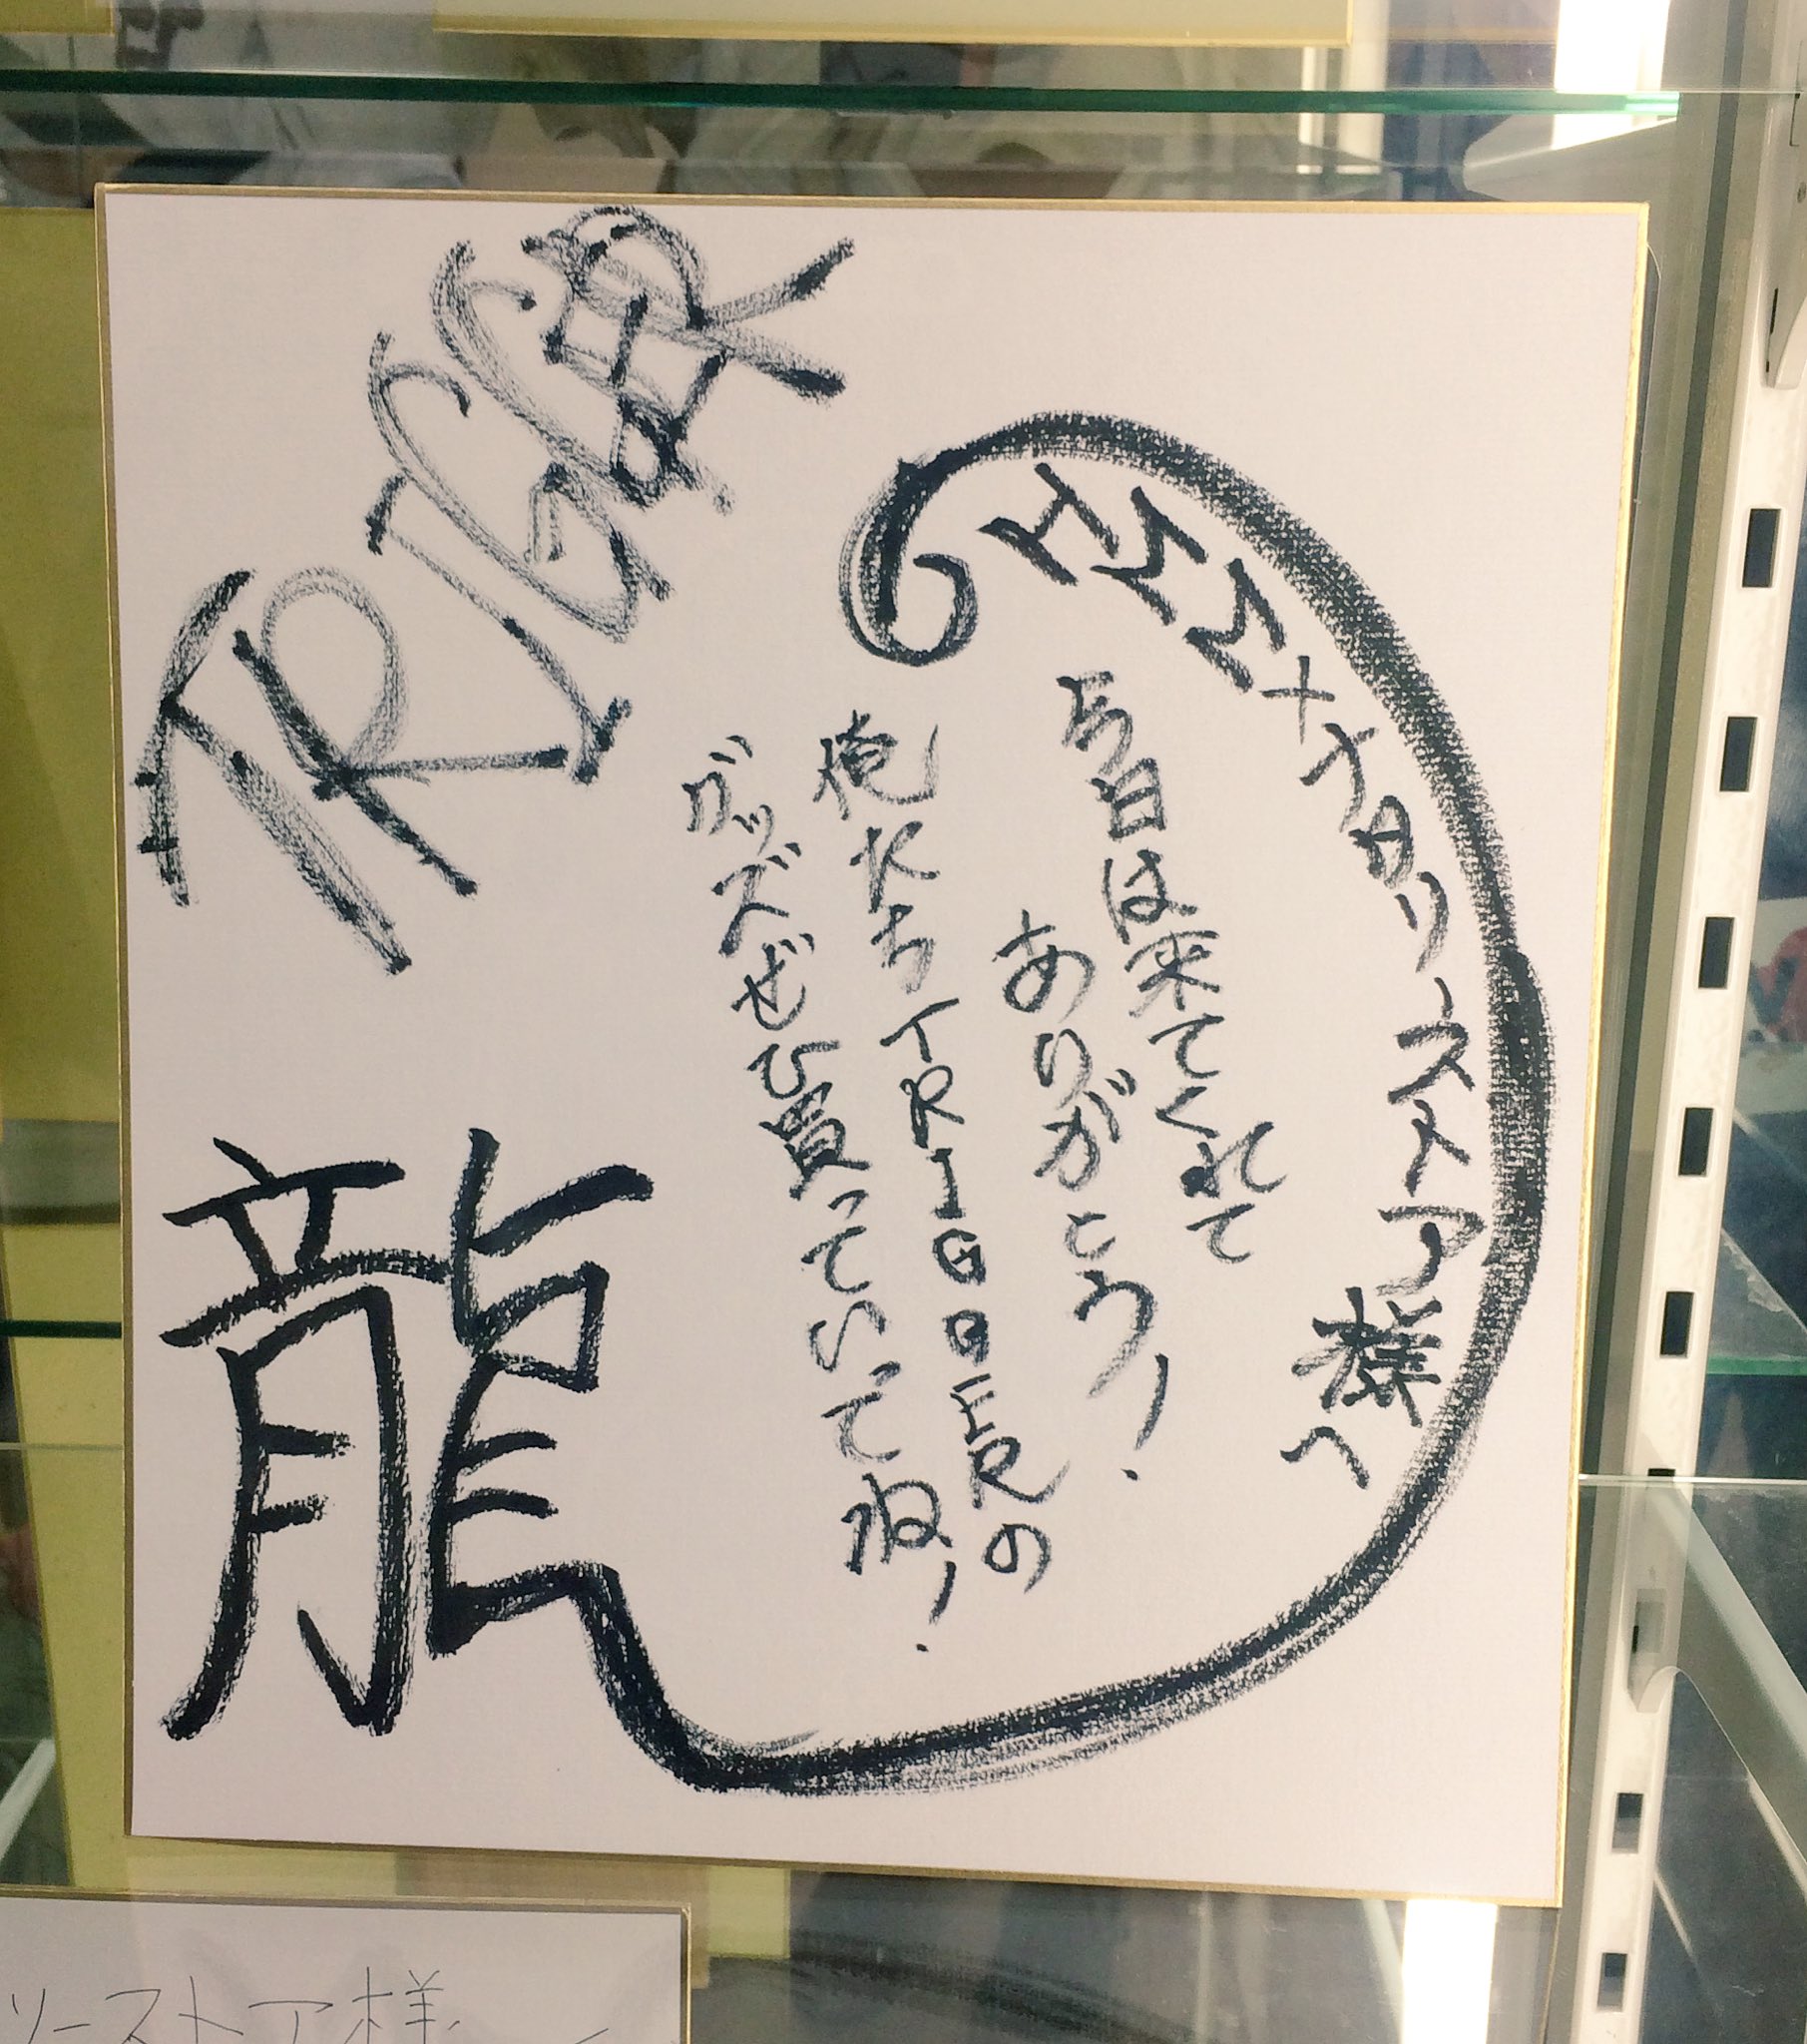 HMM×ナタリーストア様へ
今日は来てくれて
ありがとう!
俺たちTRIGGERの
グッズぜひ買っていってね!
TRIGGER
龍
リーストア様